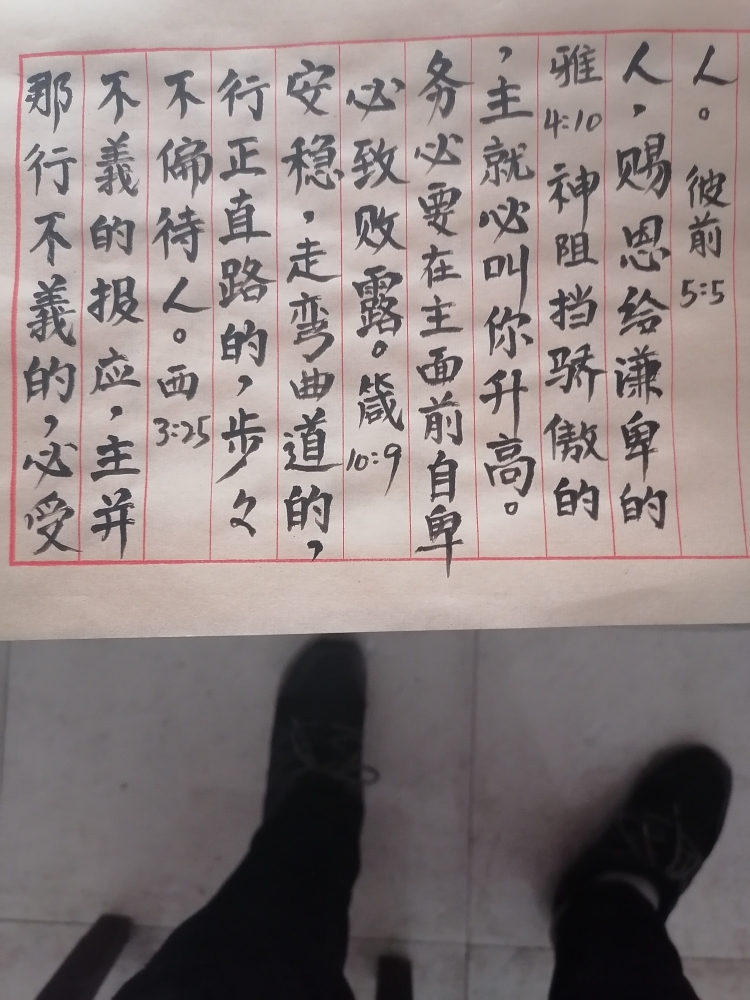 那行不義的，必受
不義的报应，主并
不偏待人。西3:25
行正直路的，步々
安稳，走弯曲道的，
必致败露。箴10:9
务必要在主面前自卑
，主就必叫你升高。
雅4:10神阻挡骄傲的
人，赐恩给谦卑的
人。彼前5:5